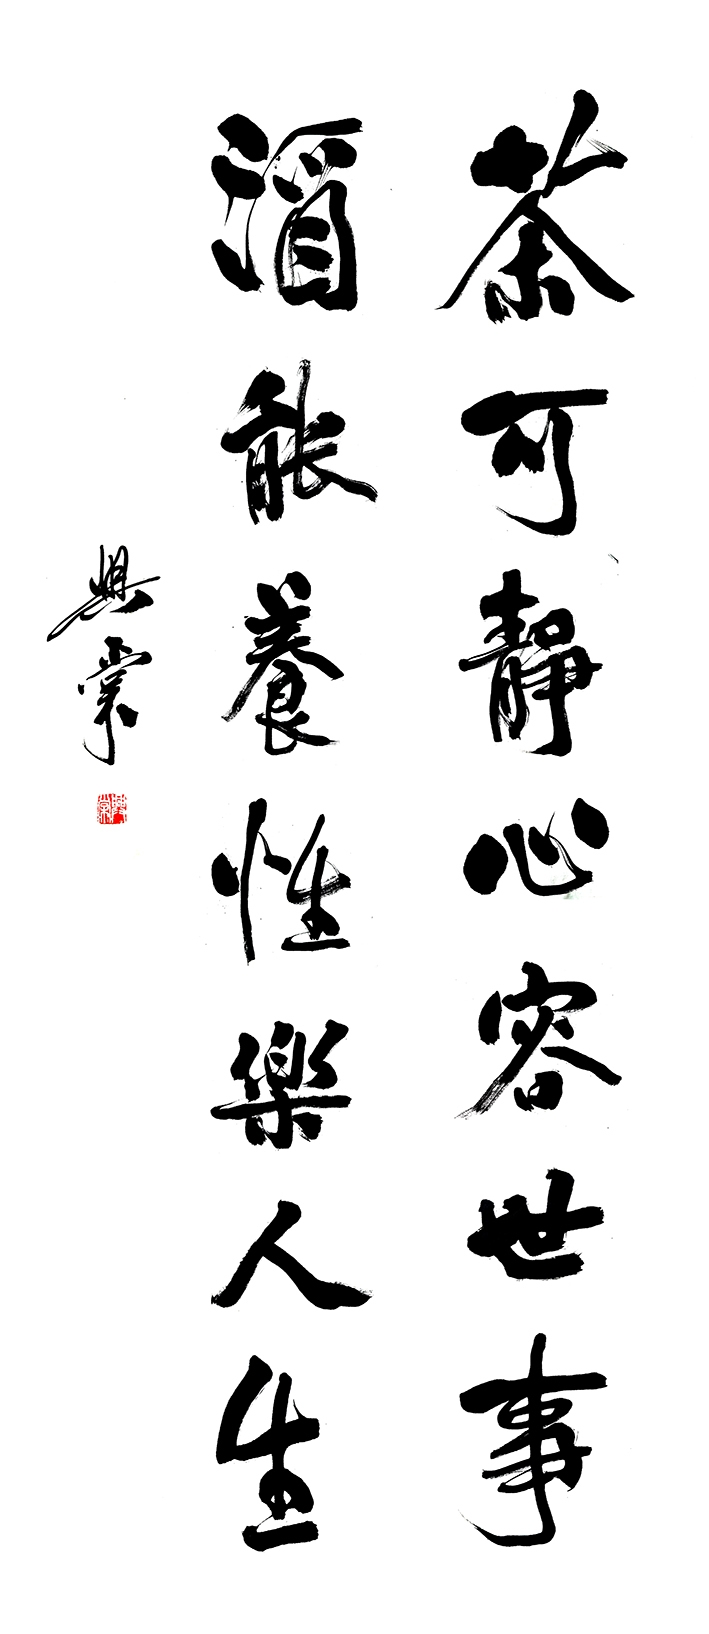 茶可靜心容世事
酒能養性樂人生